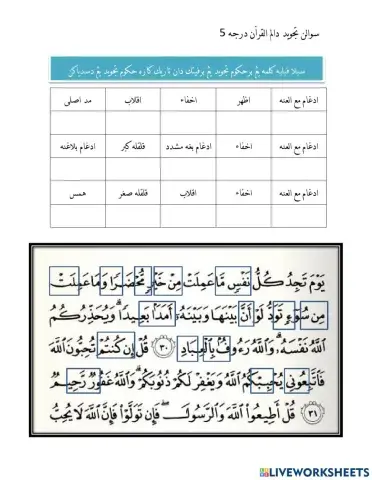 سوالن تجويد دالم القرآن درجه 5
سيلا ڤيليه كلمه يڠ برحكوم تجويد يڠ برڤينتك دان تاريك كاره حكوم تجويد يڠ دسدياكن
ادغام مع الغنه اظهر اخفاء اقلاب مد اصلى
ادغام مع الغنه اخفاء ادغام بغه مشدد قلقله كبر ادغام بلاغنه
ادغام مع الغنه اخفاء اقلاب قلقله صغر همس
يَوْمَ تَجِدُ كُلُّ نَفْسٍ مَّا عَمِلَتْ مِنْ خَيْرٍ مُّحْضَرًا وَمَا عَمِلَتْ
مِن سُوٓءٍ تَوَدُّ لَوْ أَنَّ بَيْنَهَا وَبَيْنَهُۥٓ أَمَدًۢا بَعِيدًا ۗ وَيُحَذِّرُكُمُ
ٱللَّهُ نَفْسَهُۥ ۗ وَٱللَّهُ رَءُوفٌۢ بِٱلْعِبَادِ ٣٠ قُلْ إِن كُنتُمْ تُحِبُّونَ ٱللَّهَ
فَٱتَّبِعُونِى يُحْبِبْكُمُ ٱللَّهُ وَيَغْفِرْ لَكُمْ ذُنُوبَكُمْ ۗ وَٱللَّهُ غَفُورٌ رَّحِيمٌ
٣١ قُلْ أَطِيعُوا۟ ٱللَّهَ وَٱلرَّسُولَ ۖ فَإِن تَوَلَّوْا۟ فَإِنَّ ٱللَّهَ لَا يُحِبُّ
LIVEWORKSHEETS